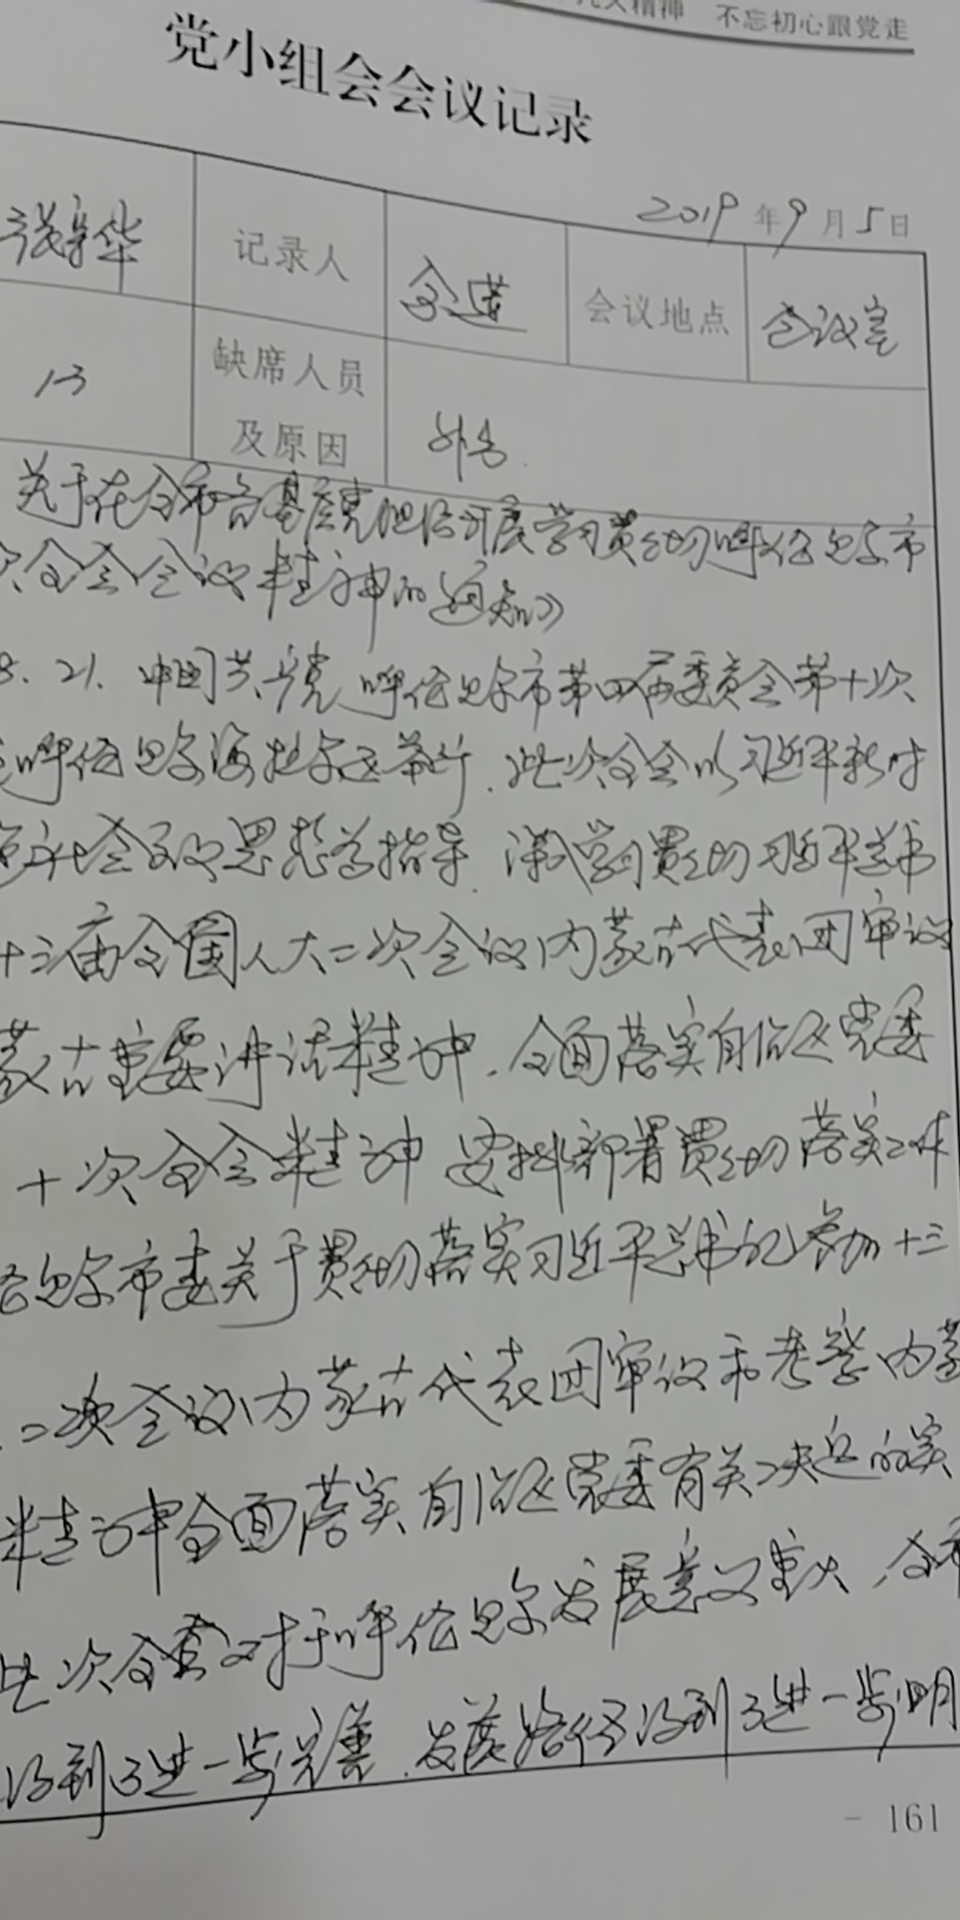 九大精神 不忘初心跟党走
党小组会会议记录
2019年9月5日
华 记录人 会议地点 会议室
13 缺席人员
及原因
关于在全市各基层党组织开展学习贯彻呼伦贝尔市
次全会会议精神的通知》
8.21. 中国共产党呼伦贝尔市第四届委员会第十次
呼伦贝尔海拉尔区举行.此次全会以习近平新时
社会主义思想为指导.深入学习贯彻习近平总书
十三届全国人大二次会议内蒙古代表团审议
蒙古重要讲话精神.全面落实自治区党委
十次全会精神 安排部署贯彻落实工作
贝尔市委关于贯彻落实习近平总书记参加十三
二次会议内蒙古代表团审议和考察内蒙
精神全面落实自治区党委有关决定的实
此次全会对于呼伦贝尔发展意义重大,全市
得到了进一步完善.发展路径得到了进一步明
- 161